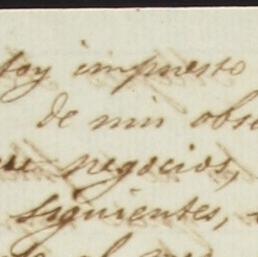 toy impuesto
de mis obse
negocios,
siguientes,